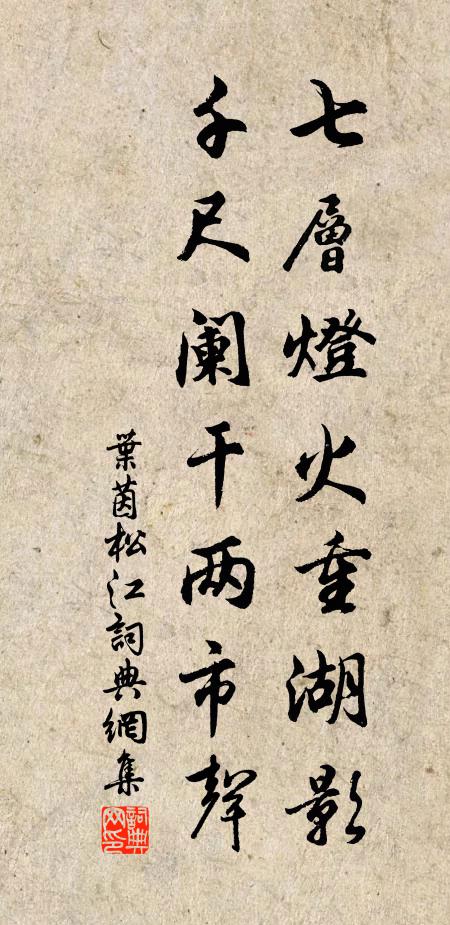 七層燈火重湖影
千尺阑干两市聲
葉茵松江詞典網集
詞典网印